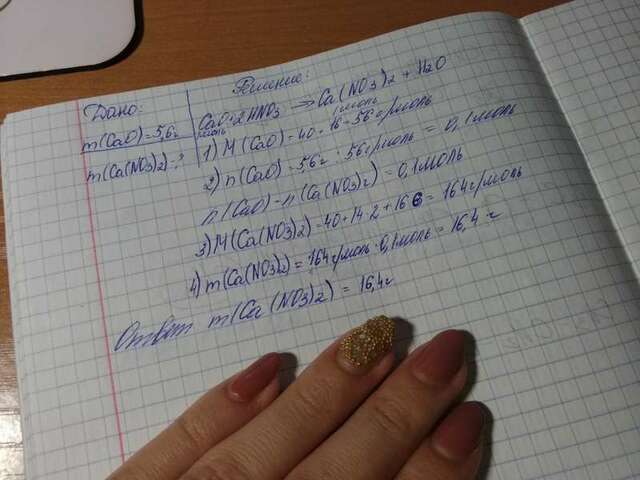 Дано:
m(CaO)=5,6г
m(Ca(NO3)2)=?
Решение:
CaO+2HNO3 → Ca(NO3)2 + H2O
1моль 1моль
1) M(CaO)=40+16=56г/моль
2) n(CaO)=5,6г : 56г/моль = 0,1моль
n(CaO)=n(Ca(NO3)2)=0,1моль
3) M(Ca(NO3)2)=40+14·2+16·6=164г/моль
4) m(Ca(NO3)2)=164г/моль·0,1моль=16,4 г
Ответ m(Ca(NO3)2)=16,4г